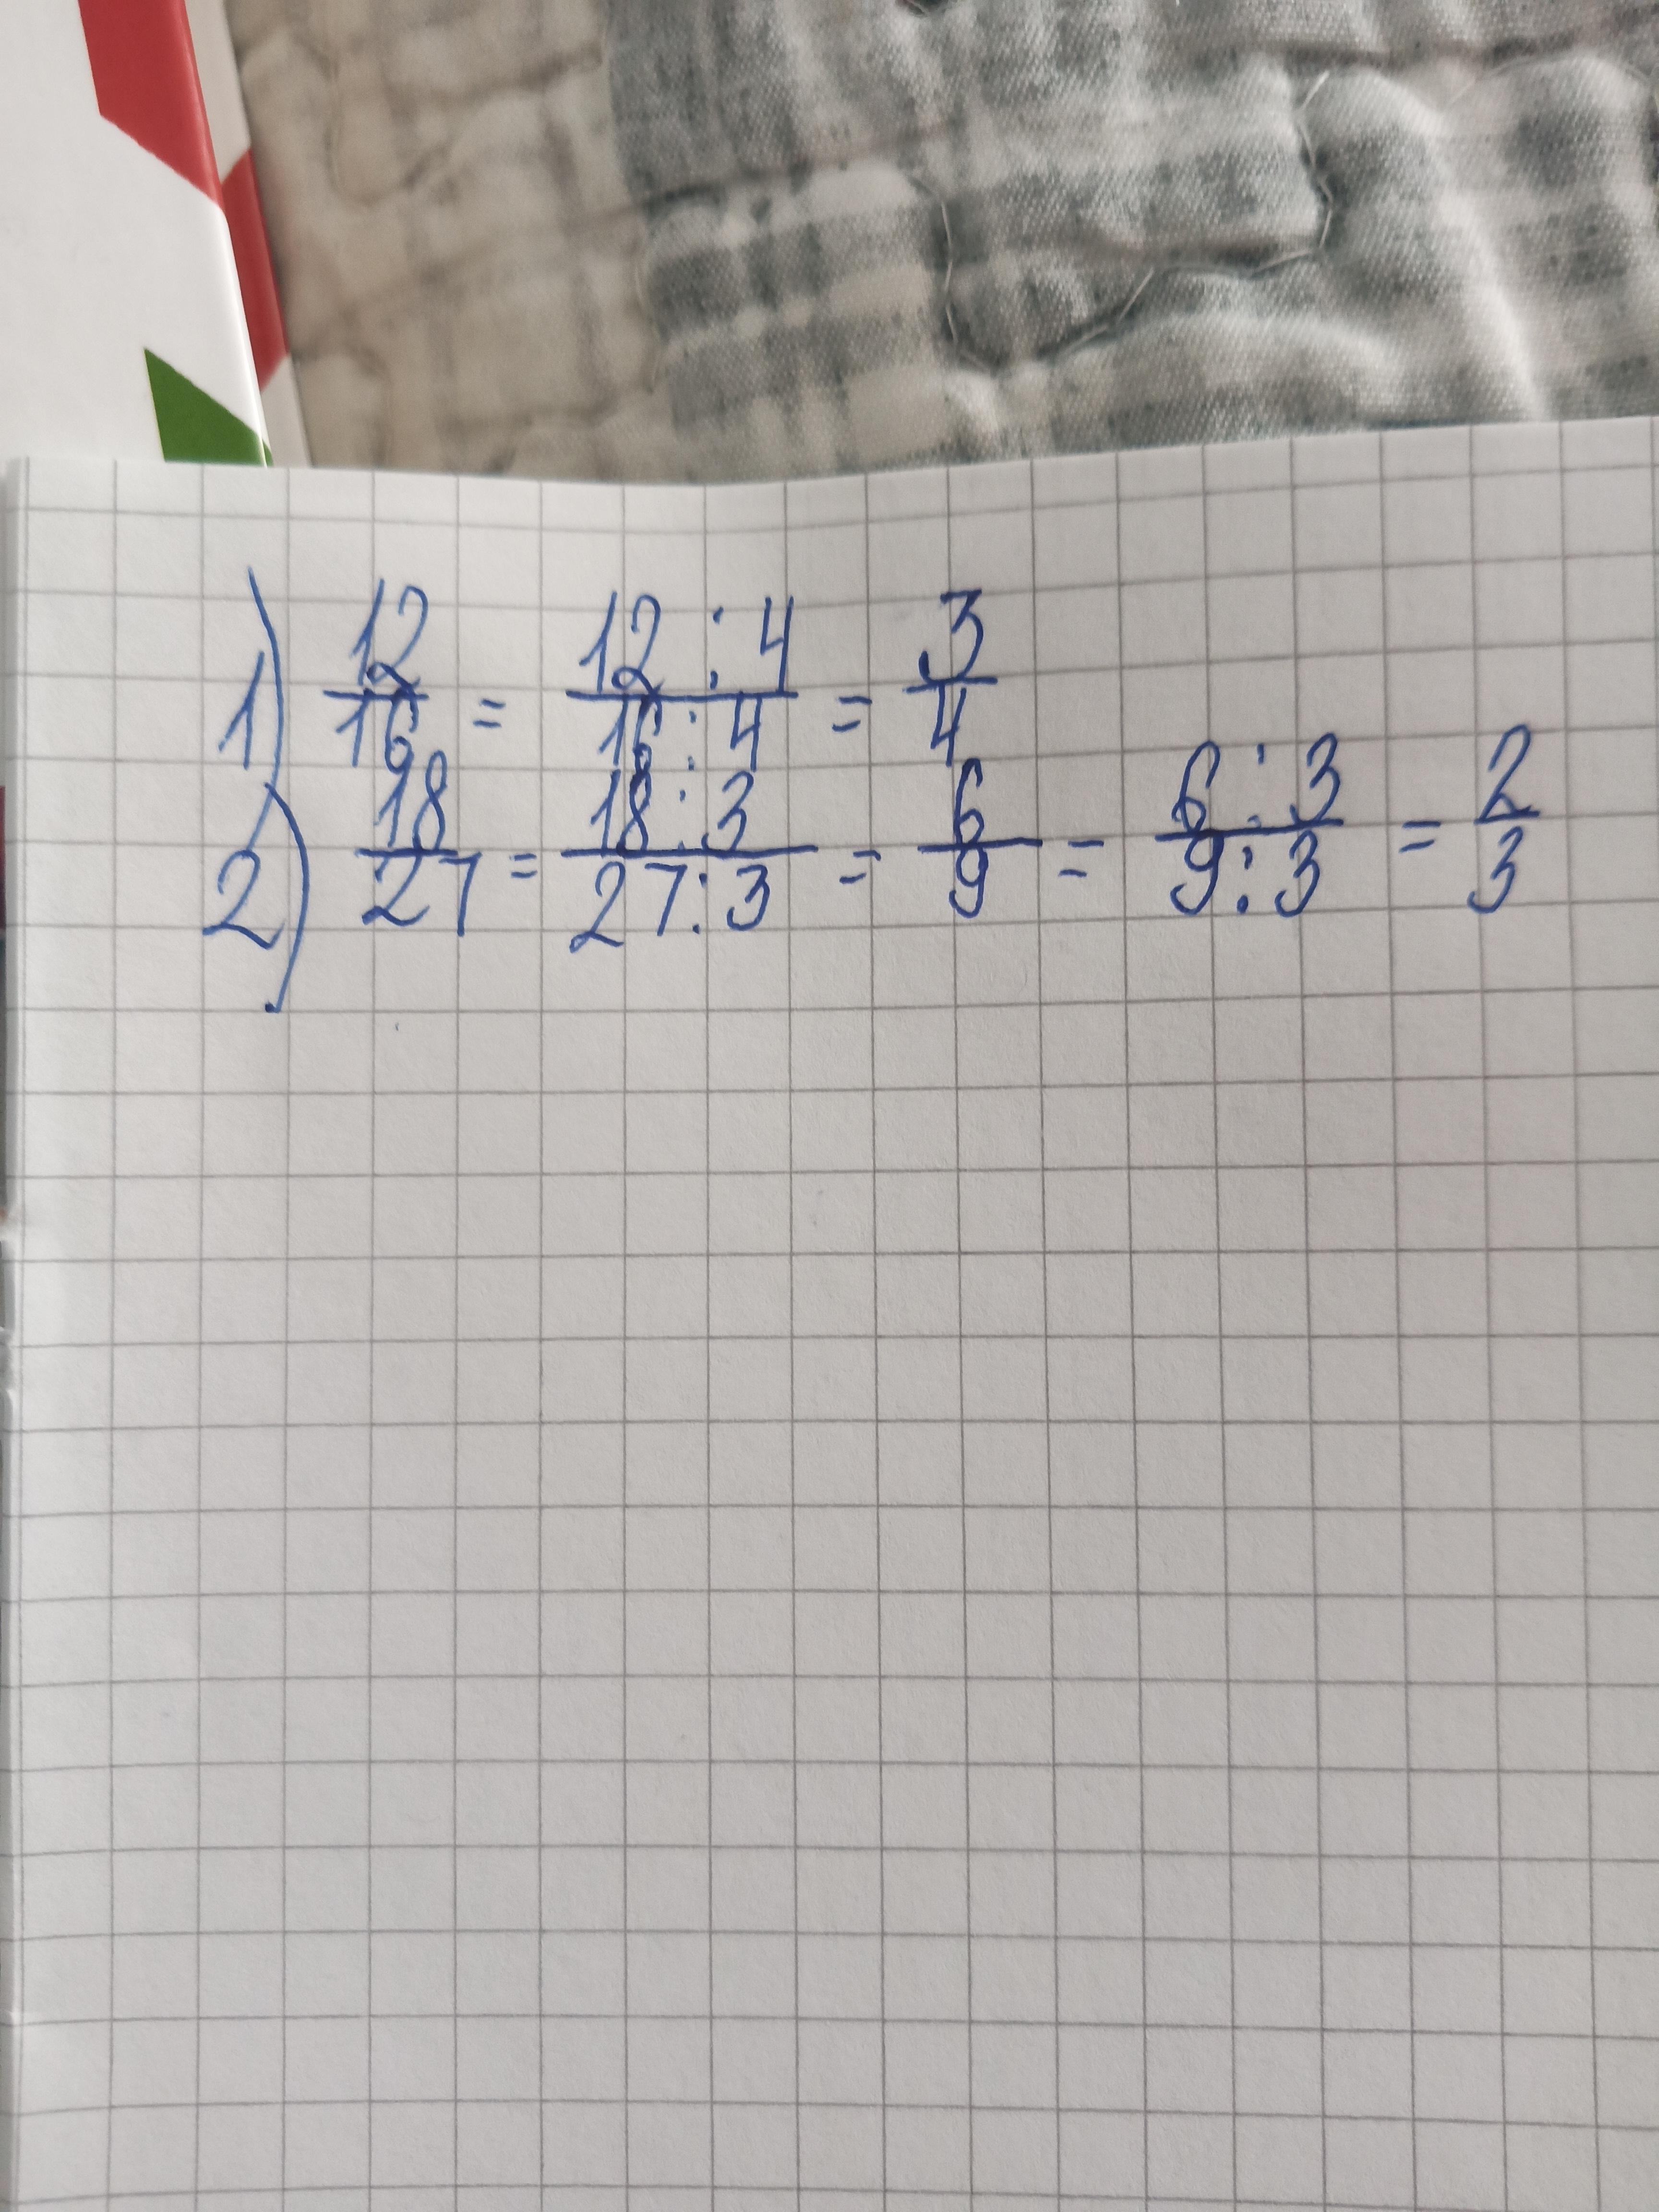 1) 12/16 = 12:4/16:4 = 3/4
2) 18/27 = 18:3/27:3 = 6/9 = 6:3/9:3 = 2/3